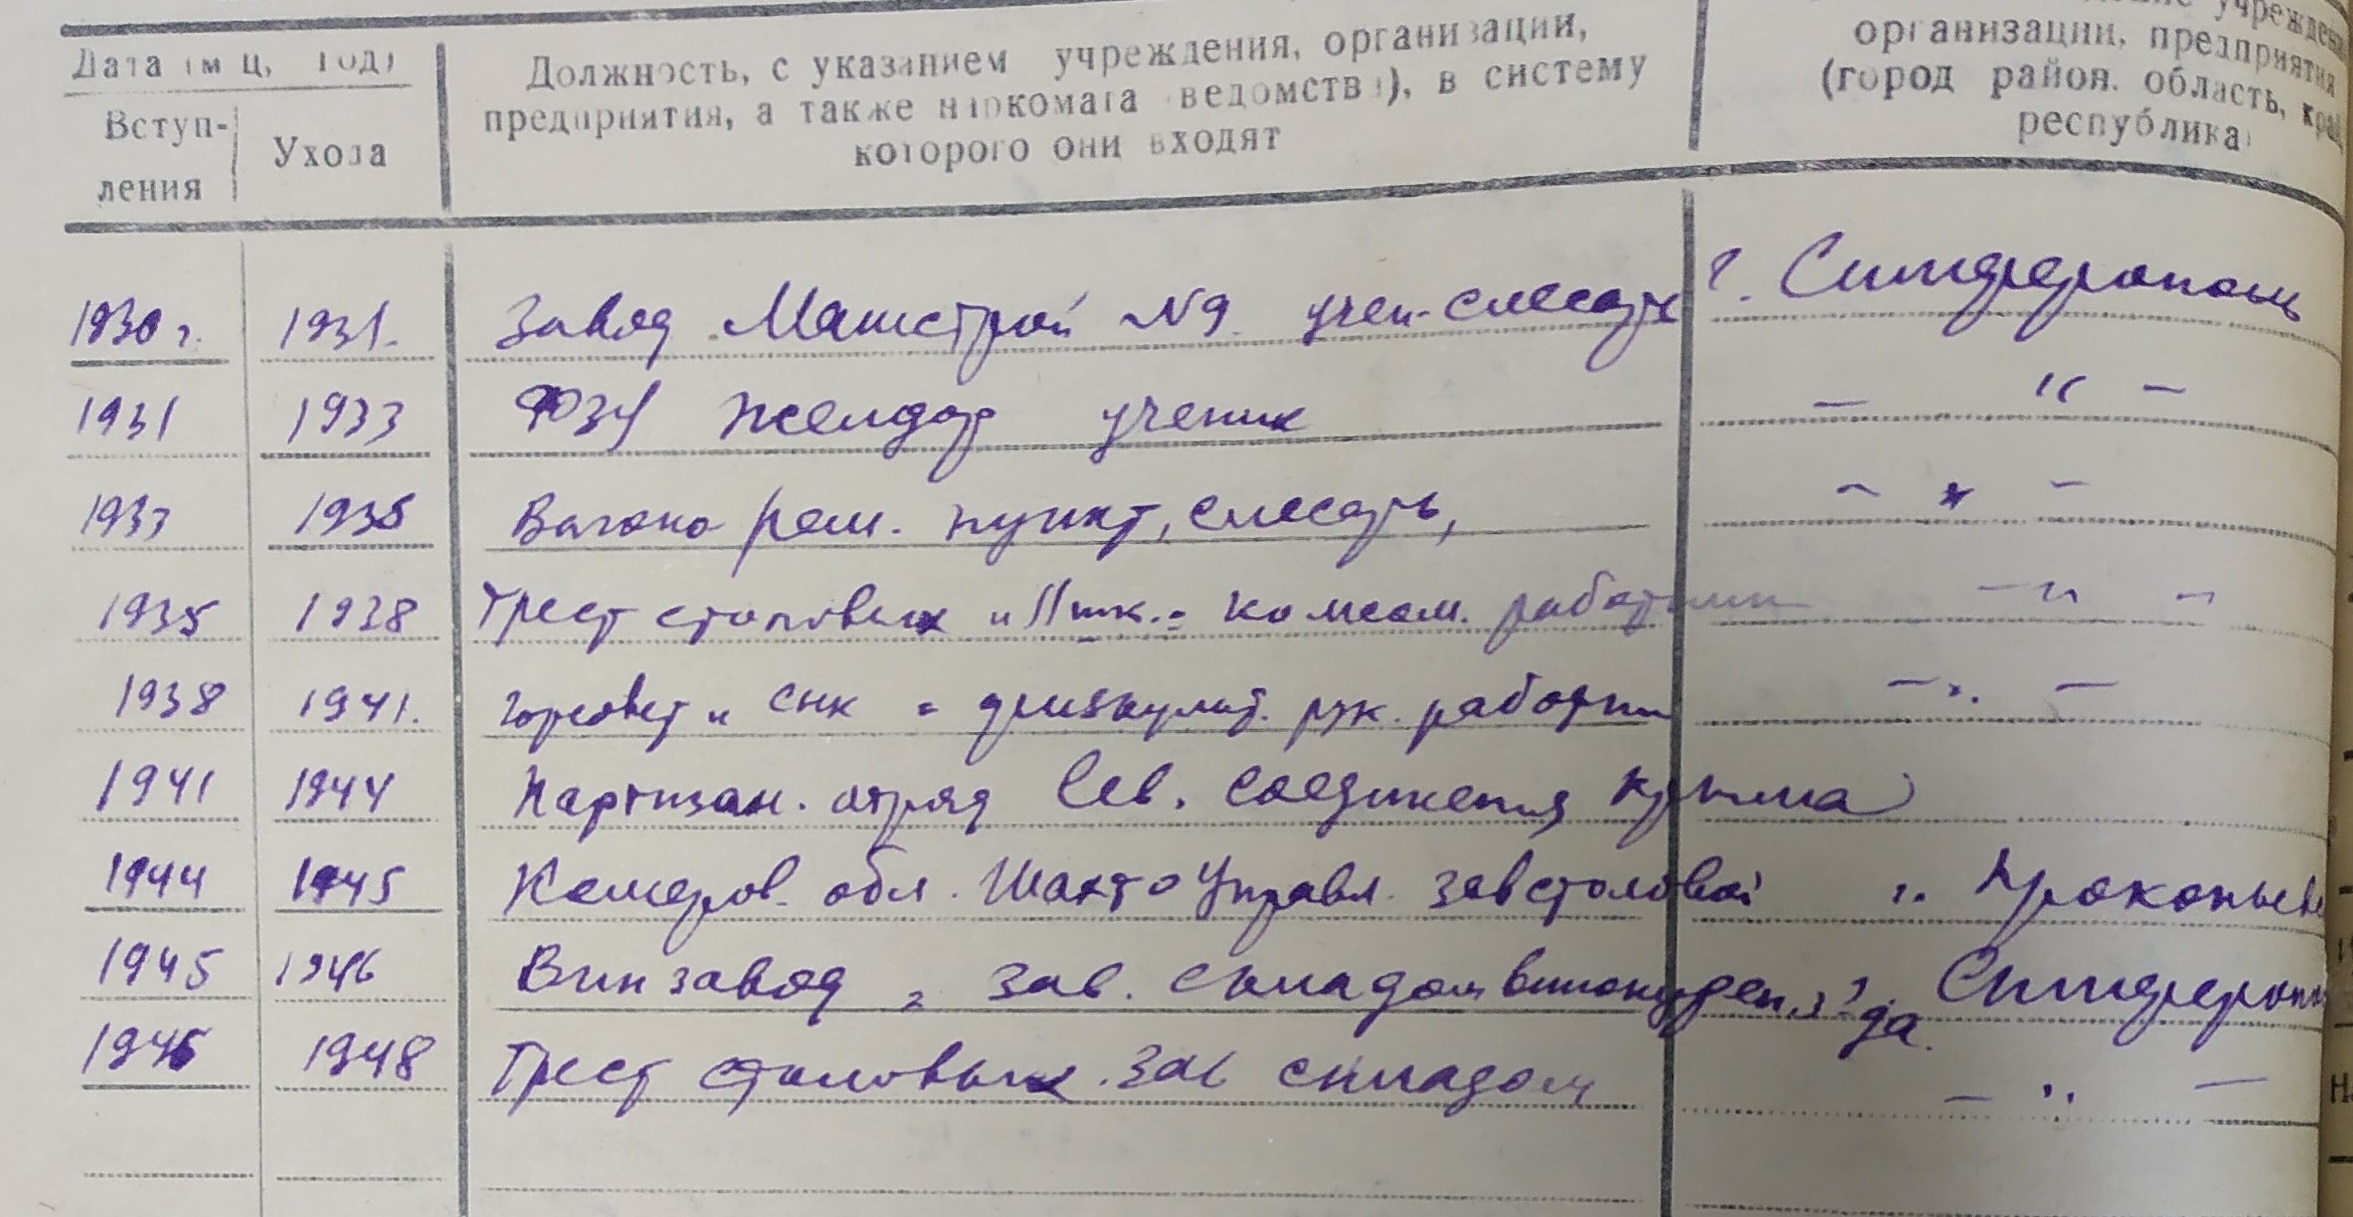 Дата (м-ц, год)
Вступ-
ления
Ухода
Должность, с указанием учреждения, организации,
предприятия, а также наркомата (ведомства), в систему
которого они входят
учрежден
организации, предприятия
(город район. область, край
республика)
1930 г. 1931. Завод Машстрой №9 учен-слесарь г. Симферополь
1931 1933 ФЗУ Желдор ученик — " —
1933 1935 Вагоно рем. пункт, слесарь, — " —
1935 1938 Трест столовых комсом. работник — " —
1938 1941. горсовет и СНК = физкульт. рук. работник — " —
1941 1944 Партизан. отряд Сев. соединения Крыма
1944 1945 Кемеров. обл. ШахтоУправл. зав столовой г. Прокопьевс
1945 1946 Винзавод = зав. складом винокурен. з-да г. Симферопол
1946 1948 Трест столовых. зав складом — " —